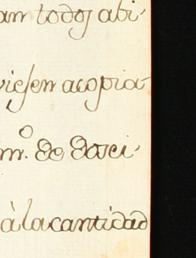 am todos abi-
viesen acopia-
m.º de dosci-
à la cantidad